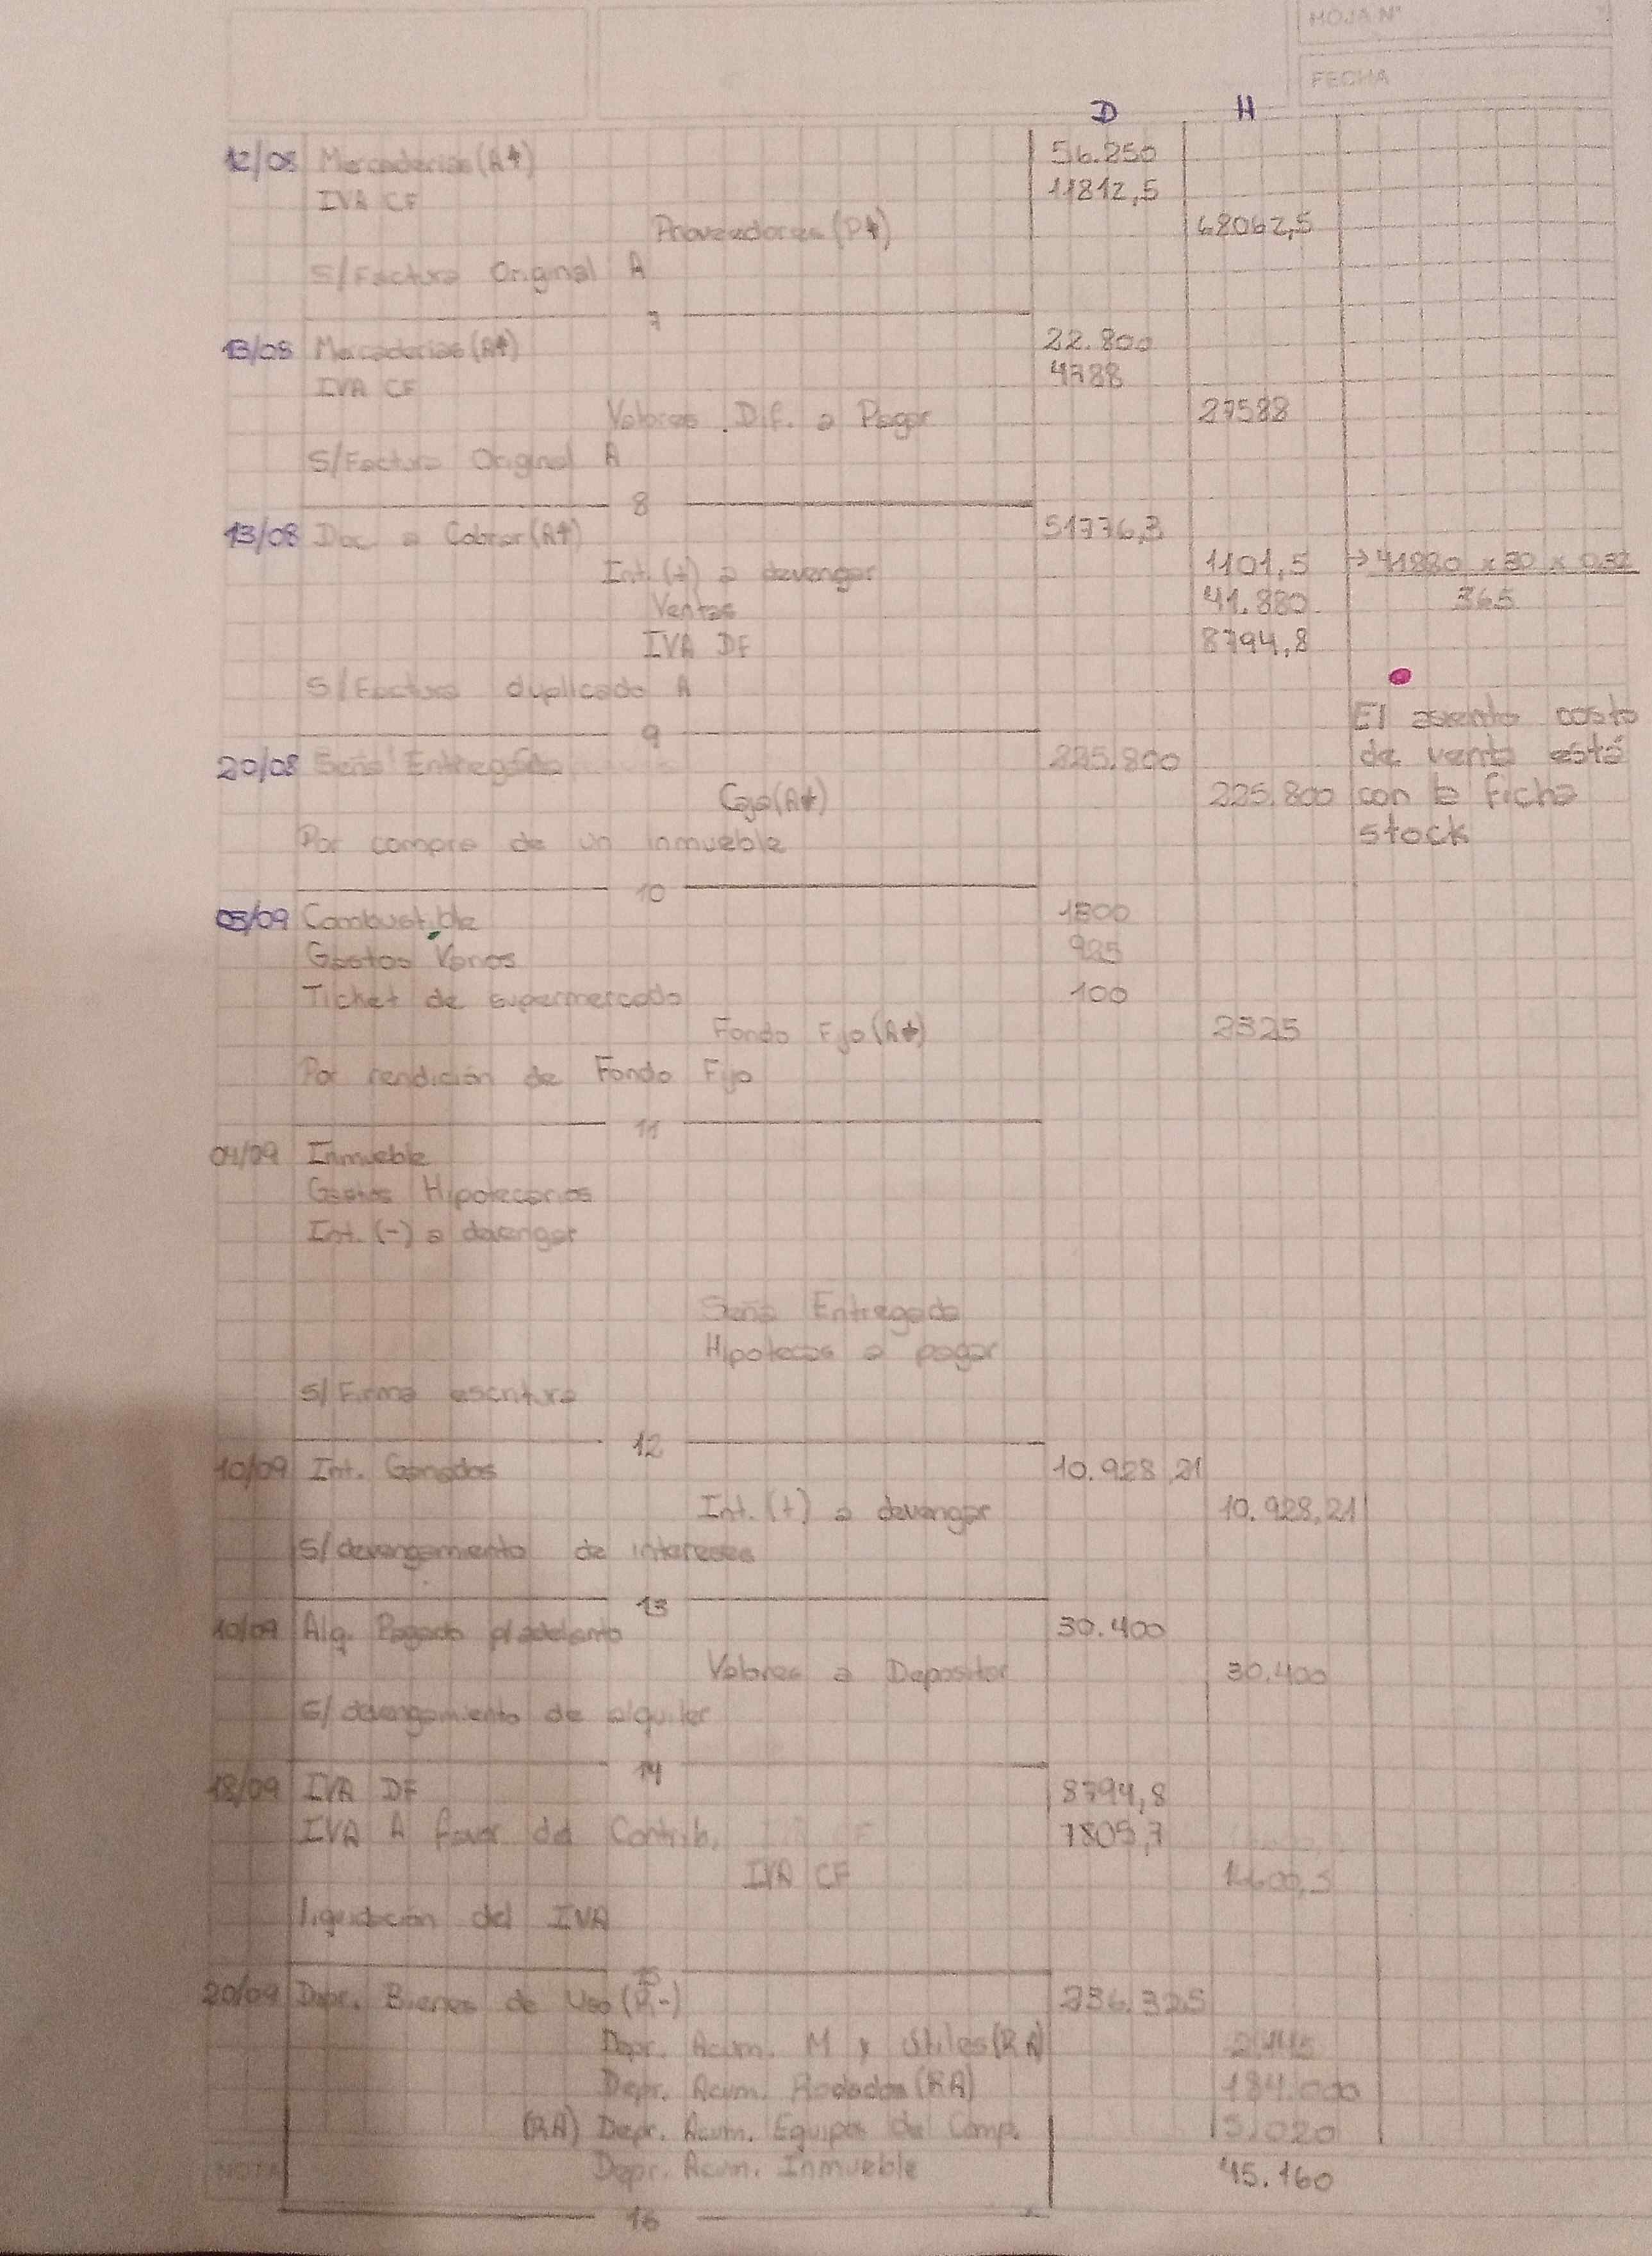 HOJA N°
FECHA
D H
12/08 Mercaderias (A↑) 56.250
IVA CF 11812,5
Proveedores (P↑) 68062,5
S/Factura Original A
7
13/08 Mercaderias (A↑) 22.800
IVA CF 4788
Valores Dif. a Pagar 27588
S/Factura Original A
8
13/08 Doc a Cobrar (A↑) 51776,3
Int. (+) a devengar 1101,5 → 41880 x 30 x 0,32
Ventas 41.880 365
IVA DF 8794,8
S/Factura duplicado A
El asiento costo
9
de venta está
20/08 Seña Entregada 225.800
Caja (A↓) 225.800 con la ficha
Por compra de un inmueble stock
10
03/09 Combustible 1300
Gastos Varios 925
Ticket de supermercado 100
Fondo Fijo (A↓) 2325
Por rendición de Fondo Fijo
11
04/09 Inmueble
Gastos Hipotecarios
Int. (-) a devengar
Seña Entregada
Hipotecas a pagar
S/ Firma escritura
12
10/09 Int. Ganados 10.928,21
Int. (+) a devengar 10.928,21
S/ devengamiento de intereses
13
10/09 Alq. Pagado p/adelanto 30.400
Valores a Depositar 30.400
S/ devengamiento de alquiler
14
18/09 IVA DF 8794,8
IVA A favor del Contrib. 7805,7
IVA CF
liquidación del IVA
15
20/09 Depr. Bienes de Uso (R-) 236.325
Depr. Acum. M y Utiles (RA)
Depr. Acum. Rodados (RA) 184.000
(RA) Depr. Acum. Equipos de Comp.
NOTA Depr. Acum. Inmueble 45.160
16